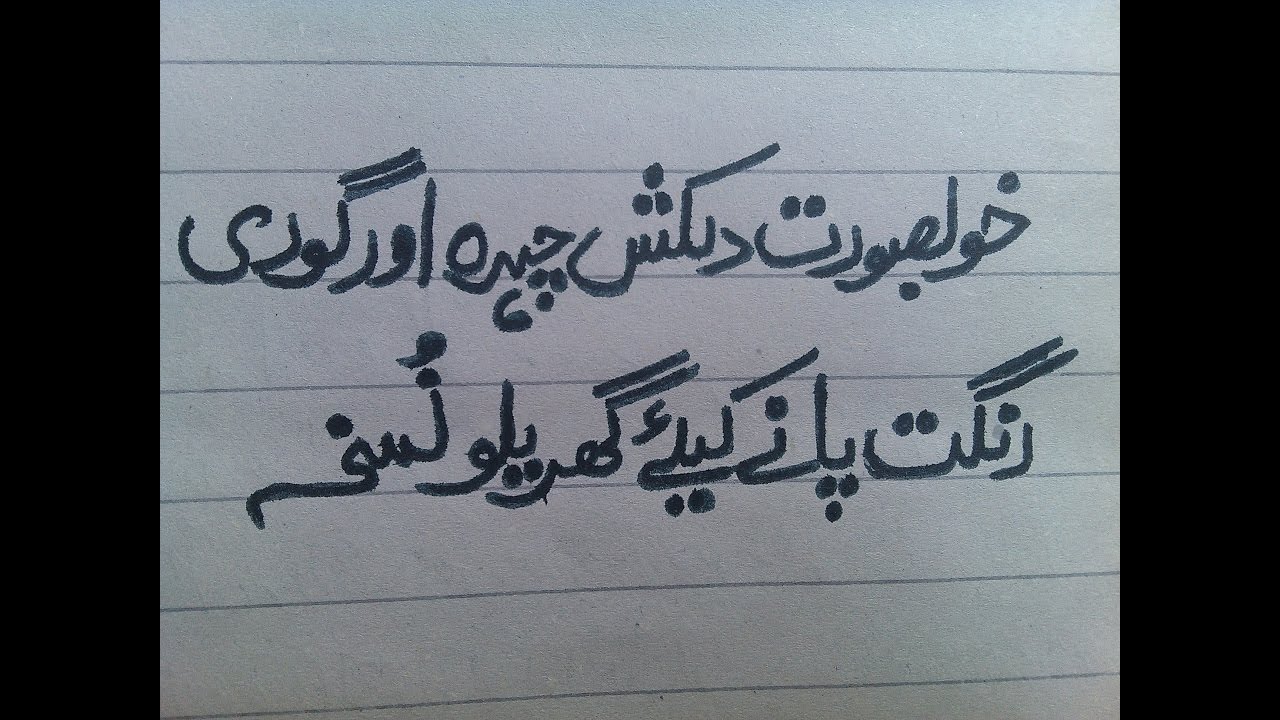 خوبصورت دلکش چہرہ اور گوری
رنگت پانے کیلئے گھریلو نُسخہ